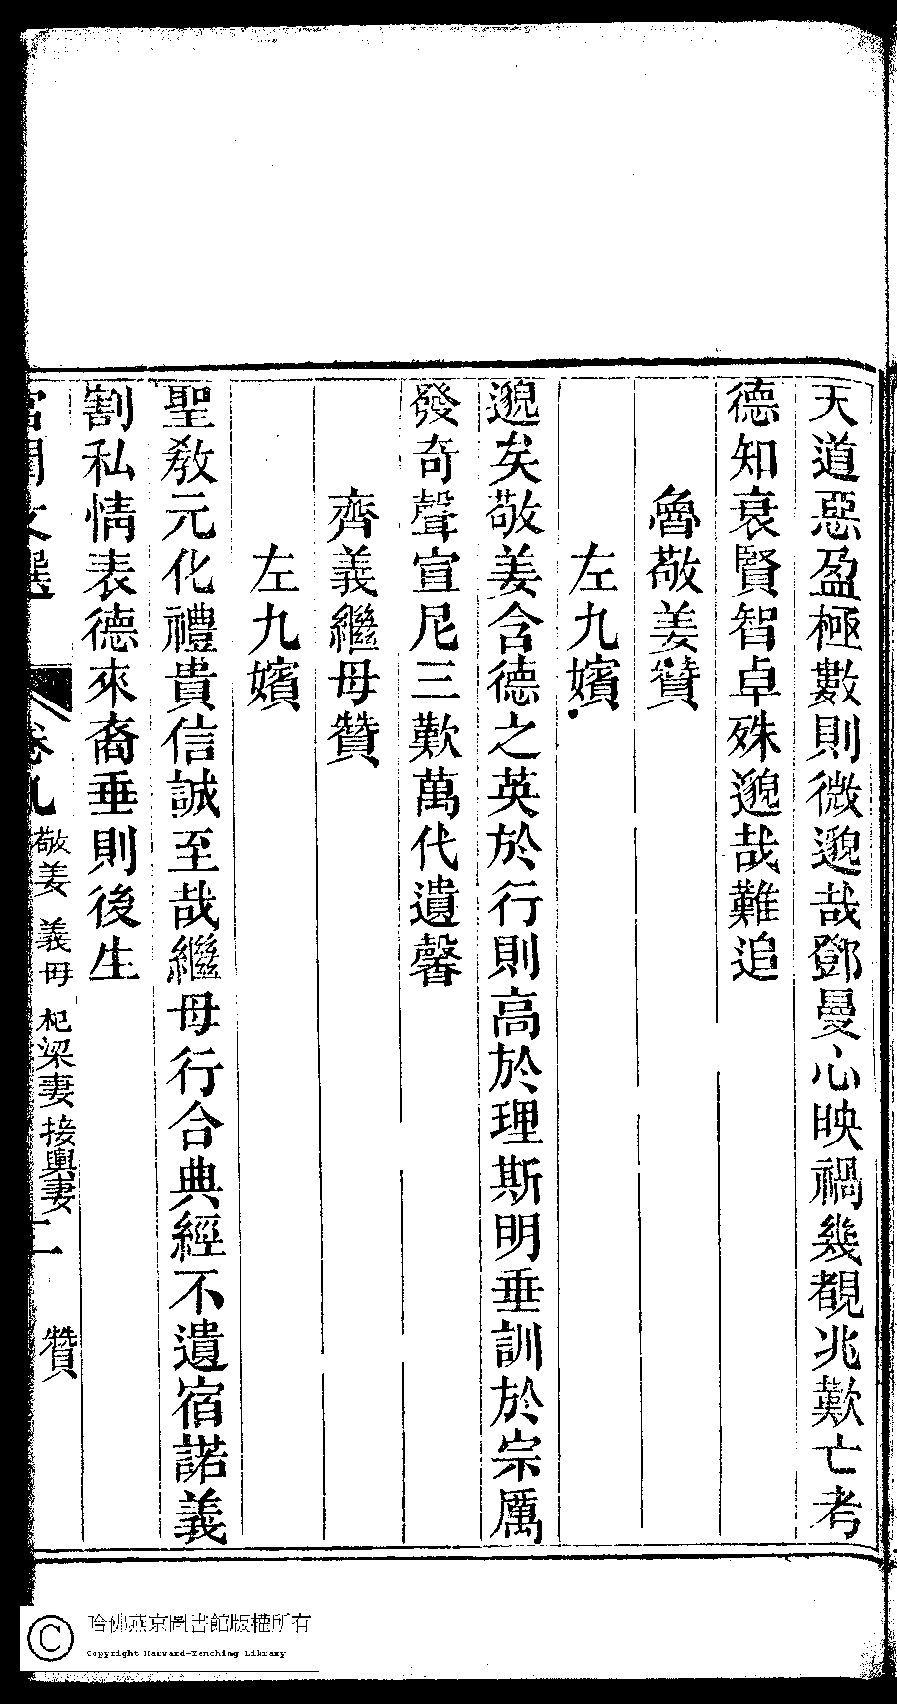 天道惡盈極數則微邈哉鄧曼心映禍幾覩兆歎亡考
德知衰賢智卓殊邈哉難追
魯敬姜贊
左九嬪
邈矣敬姜含德之英於行則高於理斯明垂訓於宗厲
發奇聲宣尼三歎萬代遺馨
齊義繼母贊
左九嬪
聖教元化禮貴信誠至哉繼母行合典經不遺宿諾義
割私情表德來裔垂則後生
宮閨文選 卷九 敬姜 義母 杞梁妻 接輿妻 二 贊
哈佛燕京圖書館版權所有
Copyright Harvard-Yenching Library